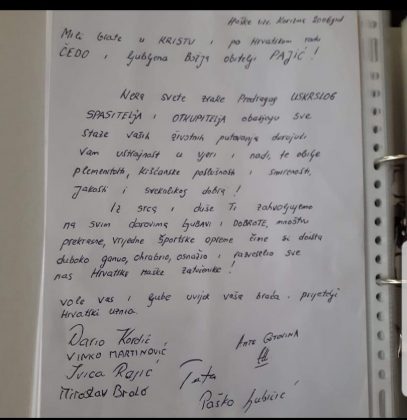 Haške uze. Korizma 2006god
Mili brate u KRISTU i po Hrvatskom rodu
ČEDO i ljubljena Božja obitelji PAJIĆ !
Neka svete zrake Predragog USKRSLOG
SPASITELJA i OTKUPITELJA obasjaju sve
staze vaših životnih putovanja darujući
Vam ustrajnost u vjeri i nadi, te obilje
plemenitosti, kršćanske poslušnosti i smirenosti,
jakosti i svekolikog dobra !
Iz srca i duše Ti zahvaljujemo
na svim darovima LJUBAVI i DOBROTE, mnoštvu
prekrasne, vrijedne športske opreme čime si doista
duboko ganuo, ohrabrio, osnažio i razveselio sve
nas Hrvatske haške zatvorenike !
vole vas i ljube uvijek vaša braća i prijatelji
Hrvatski uznici.
Dario Kordić
ANTE GOTOVINA
VINKO MARTINOVIĆ
Ivica Rajić
Tuta
Miroslav Bralo
Paško Ljubičić